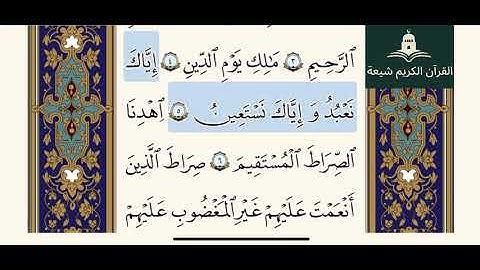 ٱلرَّحِيمِ ٣ مَٰلِكِ يَوْمِ ٱلدِّينِ ٤ إِيَّاكَ
نَعْبُدُ وَ إِيَّاكَ نَسْتَعِينُ ٥ ٱهْدِنَا
ٱلصِّرَاطَ ٱلْمُسْتَقِيمَ ٦ صِرَاطَ ٱلَّذِينَ
أَنْعَمْتَ عَلَيْهِمْ غَيْرِ ٱلْمَغْضُوبِ عَلَيْهِمْ
القرآن الكريم شيعة